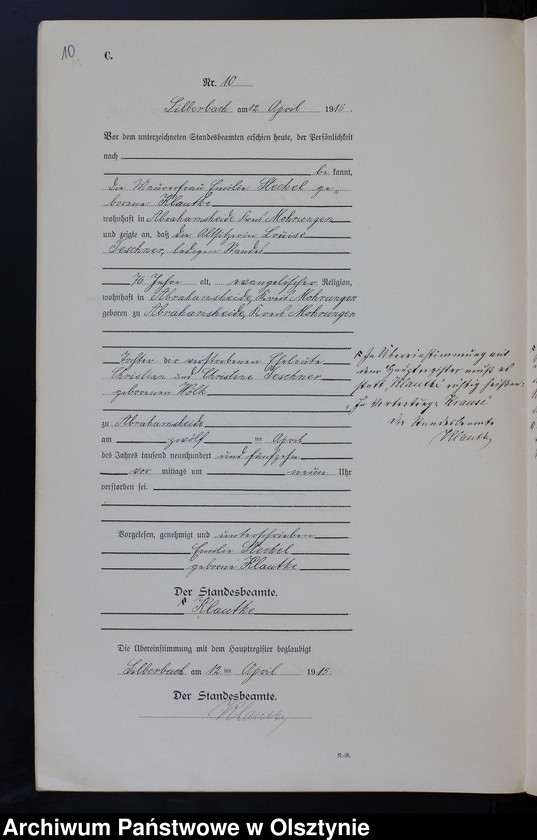 10
C.
Nr. 10
Silberbach am 12 April 1915.
Vor dem unterzeichneten Standesbeamten erschien heute, der Persönlichkeit
nach
be kannt,
die Maurerfrau Emilie Steckel ge-
borene Klautke
wohnhaft in Abrahamsheide, Kreis Mohrungen
und zeigte an, daß die Altsitzerin Louise
Jeschner, ledigen Standes
76 Jahre alt, evangelischer Religion,
wohnhaft in Abrahamsheide, Kreis Mohrungen
geboren zu Abrahamsheide, Kreis Mohrungen
Tochter der verstorbenen Eheleute
Christian und Christine Jeschner
geborenen Wölk
zu Abrahamsheide
am zwölf ten April
des Jahres tausend neunhundert und fünfzehn
vor mittags um neun Uhr
verstorben sei.
Vorgelesen, genehmigt und unterschrieben
Emilie Steckel
geborene Klautke
Der Standesbeamte.
Klautke
Die Übereinstimmung mit dem Hauptregister beglaubigt
Silberbach am 12 ten April 1915.
Der Standesbeamte.
In Übereinstimmung mit
dem Hauptregister muß es
statt "Klautke" richtig heißen:
"In Vertretung: Krause"
Der Standesbeamte
R.-R.
Archiwum Państwowe w Olsztynie